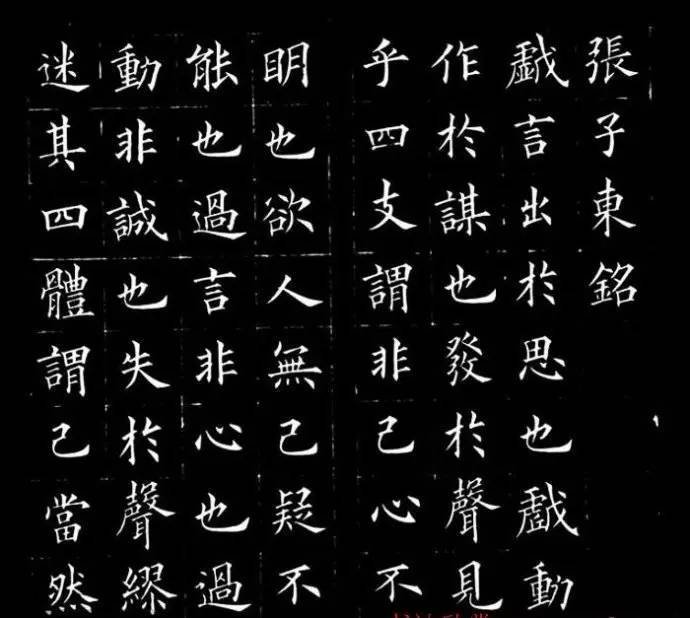 張子東銘
戲言出於思也戲動
作於謀也發於聲見
乎四支謂非己心不
明也欲人無己疑不
能也過言非心也過
動非誠也失於聲繆
迷其四體謂己當然